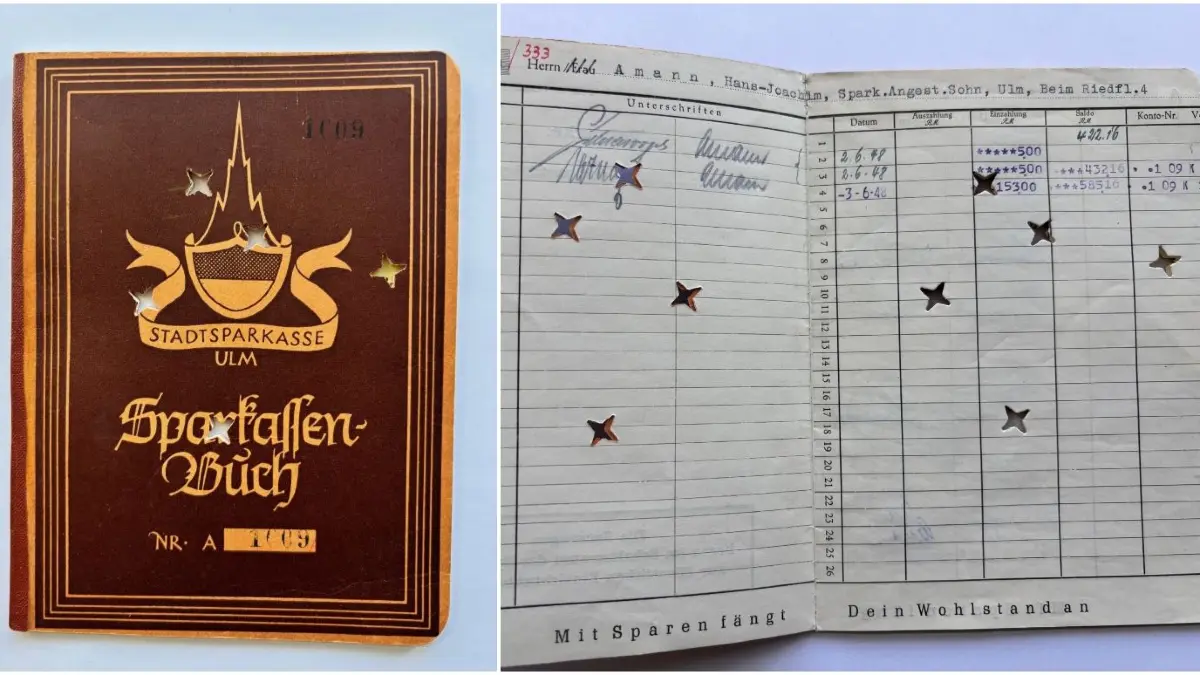 1009
STADTSPARKASSE
ULM
Sparkassen-
Buch
NR. A 1009
333
Herrn Amann, Hans-Joachim, Spark.Angest.Sohn, Ulm, Beim Riedfl.4
Unterschriften
Datum Auszahlung RM Einzahlung RM Saldo RM Konto-Nr.
1 422.16
2 2.6.48 *****500
3 2.6.48 *****500 ***43216
4 -3-6-48 15300 ***58516
5
6
7
8
9
10
11
12
13
14
15
16
17
18
19
20
21
22
23
24
25
26
Mit Sparen fängt Dein Wohlstand an